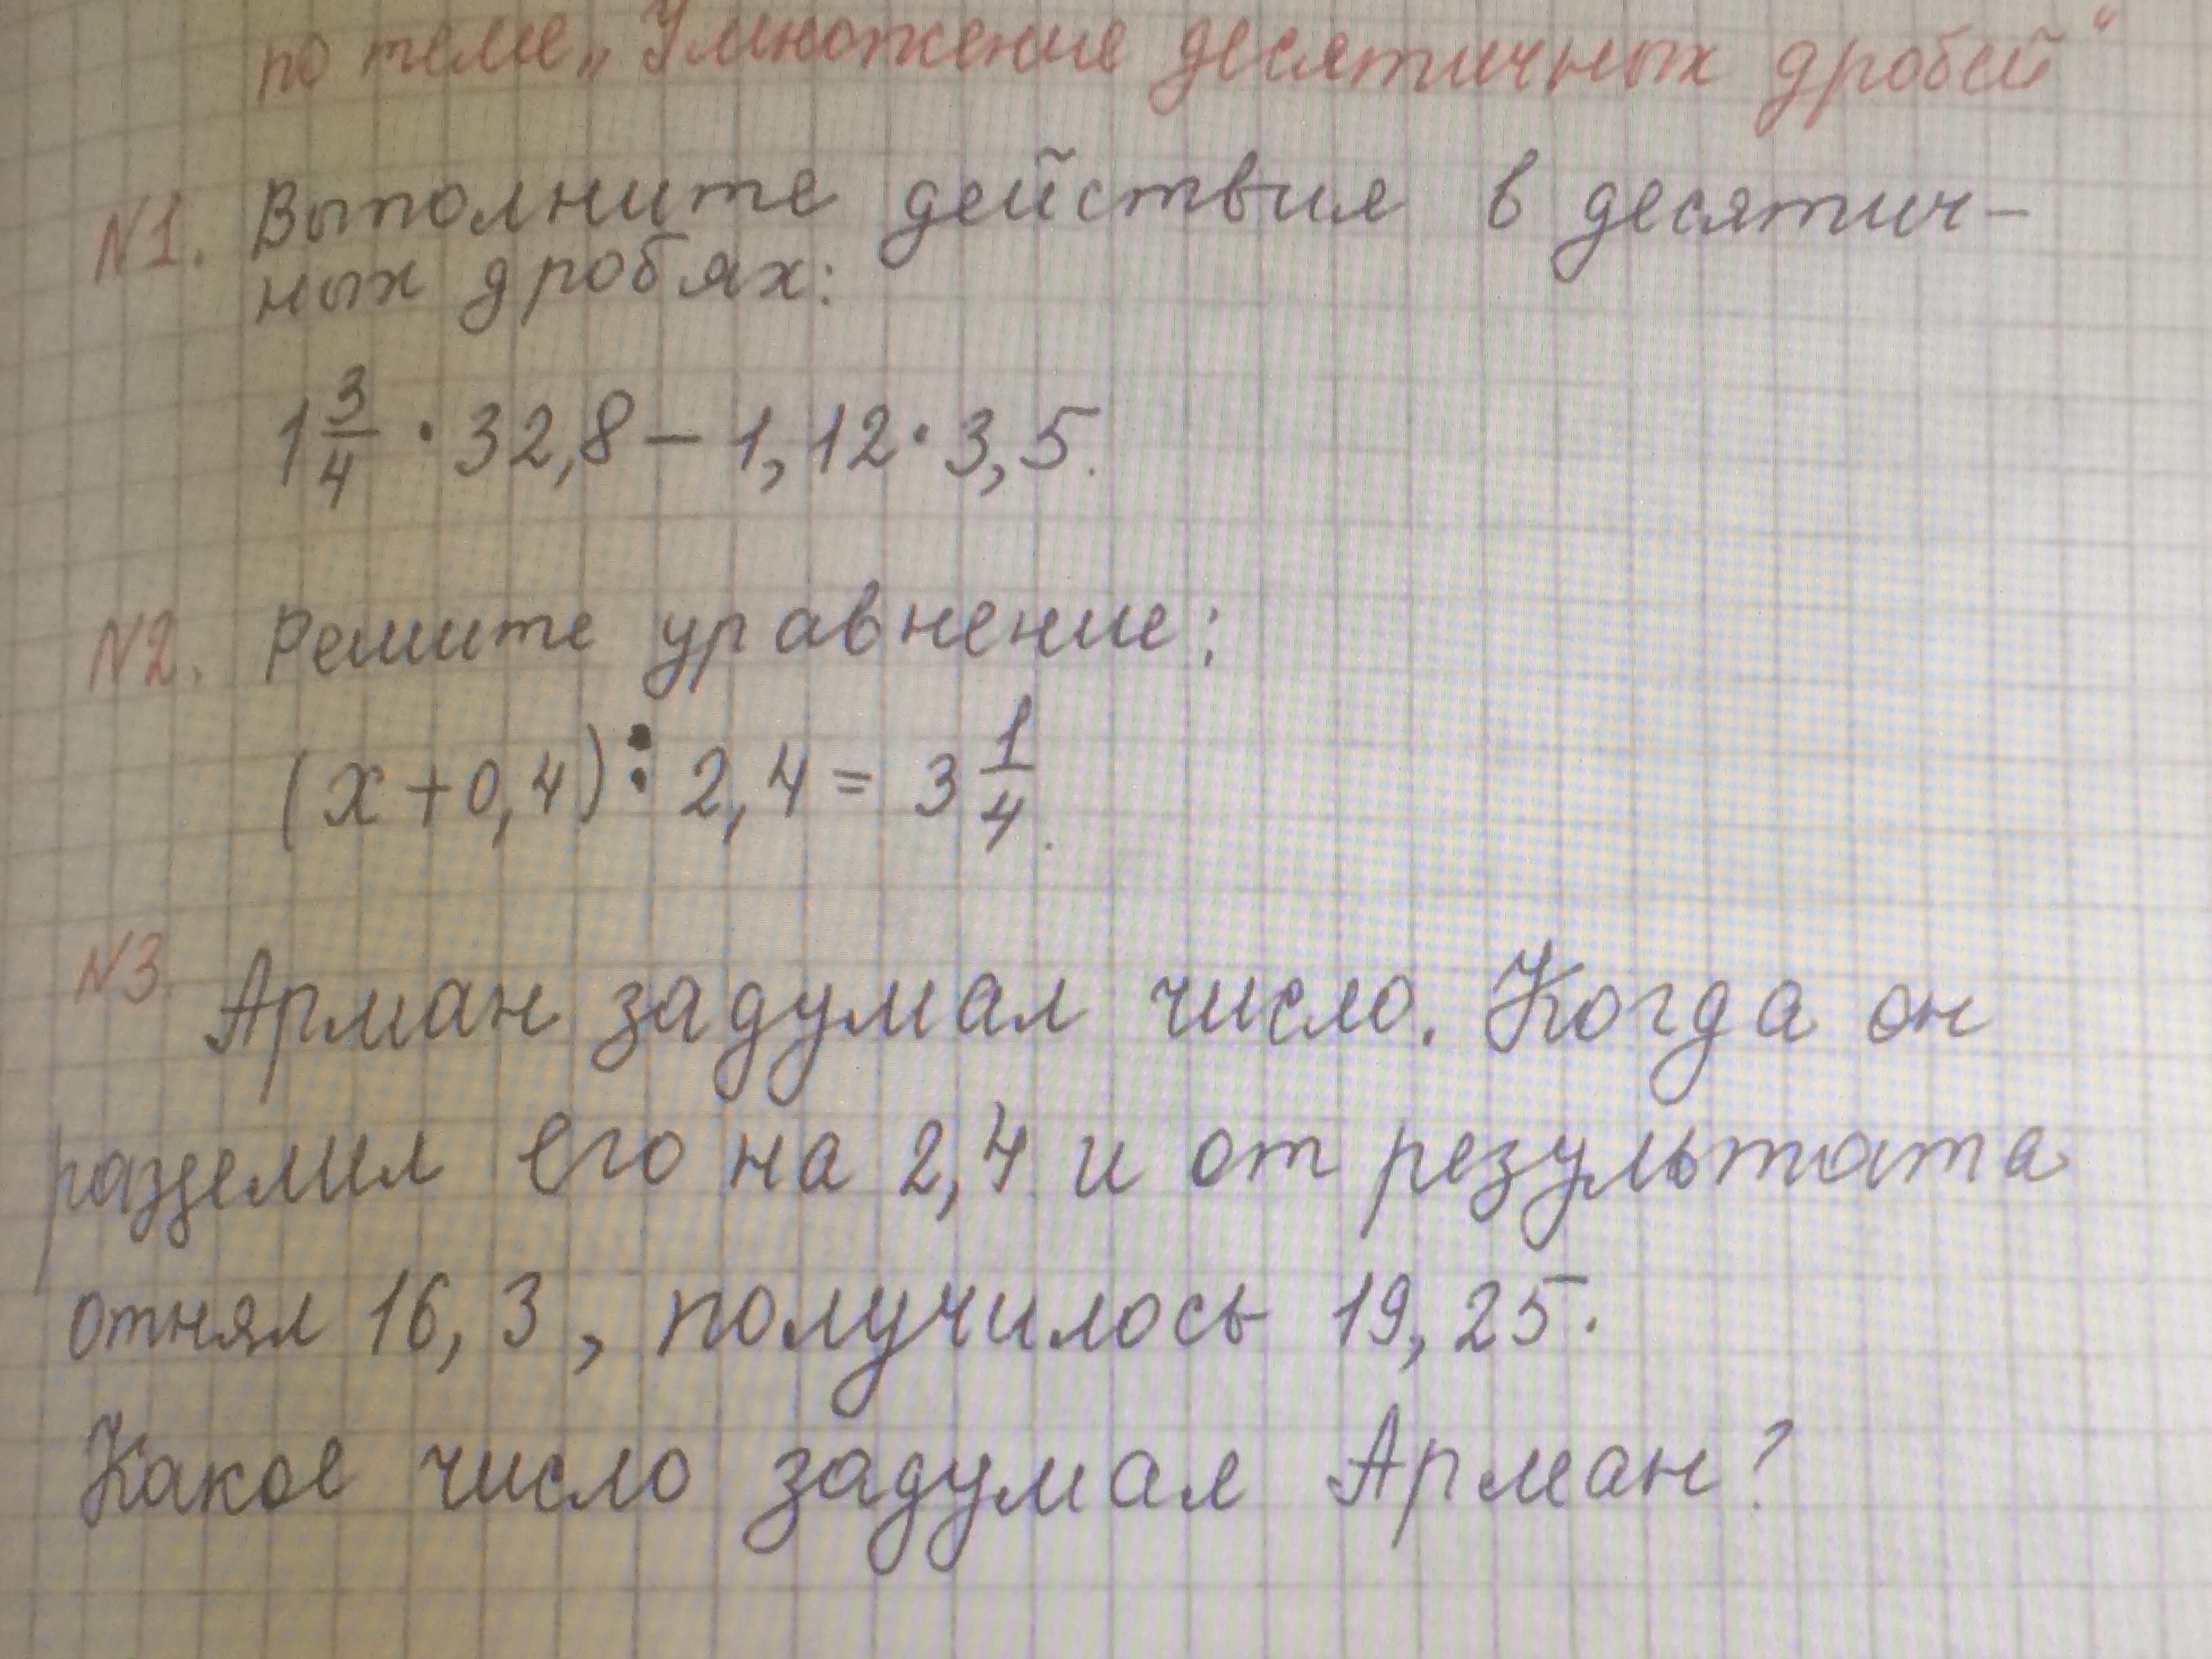 по теме „Умножение десятичных дробей“
N1. Выполните действия в десятич-
ных дробях:
1 3/4 · 32,8 − 1,12 · 3,5.
N2. Решите уравнение:
(х + 0,4) : 2,4 = 3 1/4.
N3. Арман задумал число. Когда он
разделил его на 2,4 и от результата
отнял 16,3, получилось 19,25.
Какое число задумал Арман?